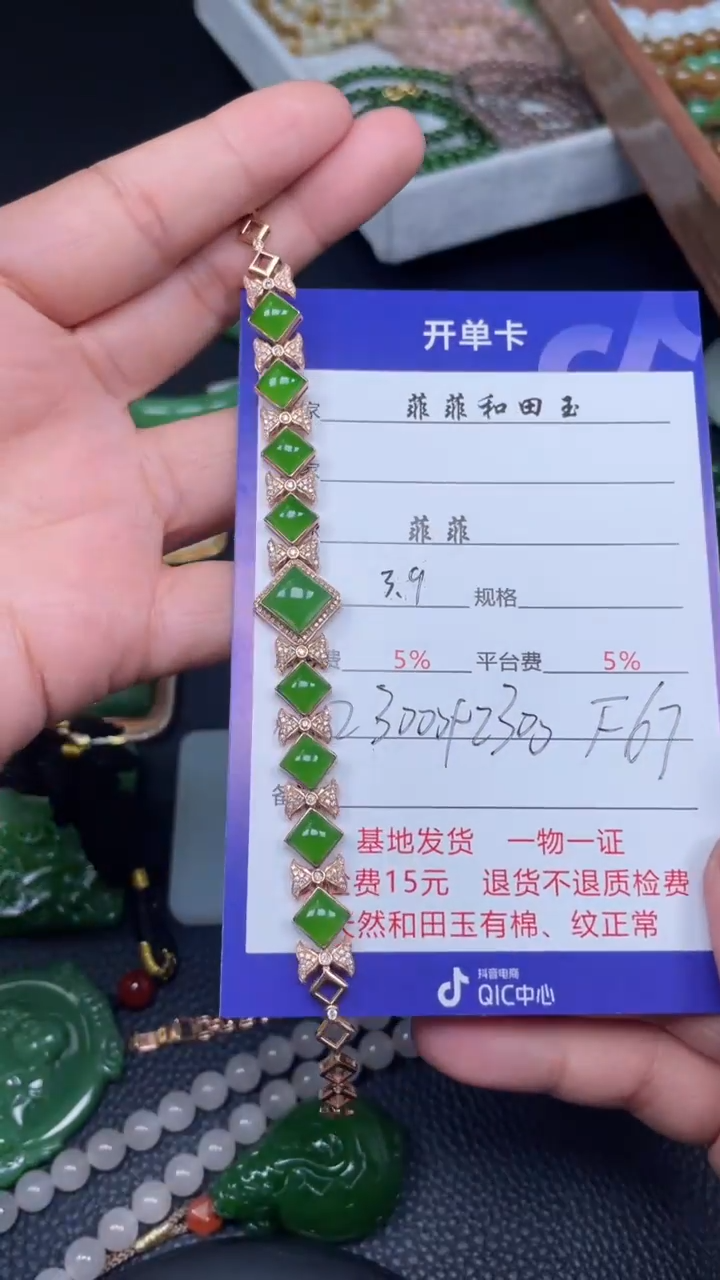 开单卡
家 菲菲和田玉
菲菲
3.9 规格
费 5% 平台费 5%
F67
备
基地发货 一物一证
费15元 退货不退质检费
天然和田玉有棉、纹正常
抖音电商
QIC中心